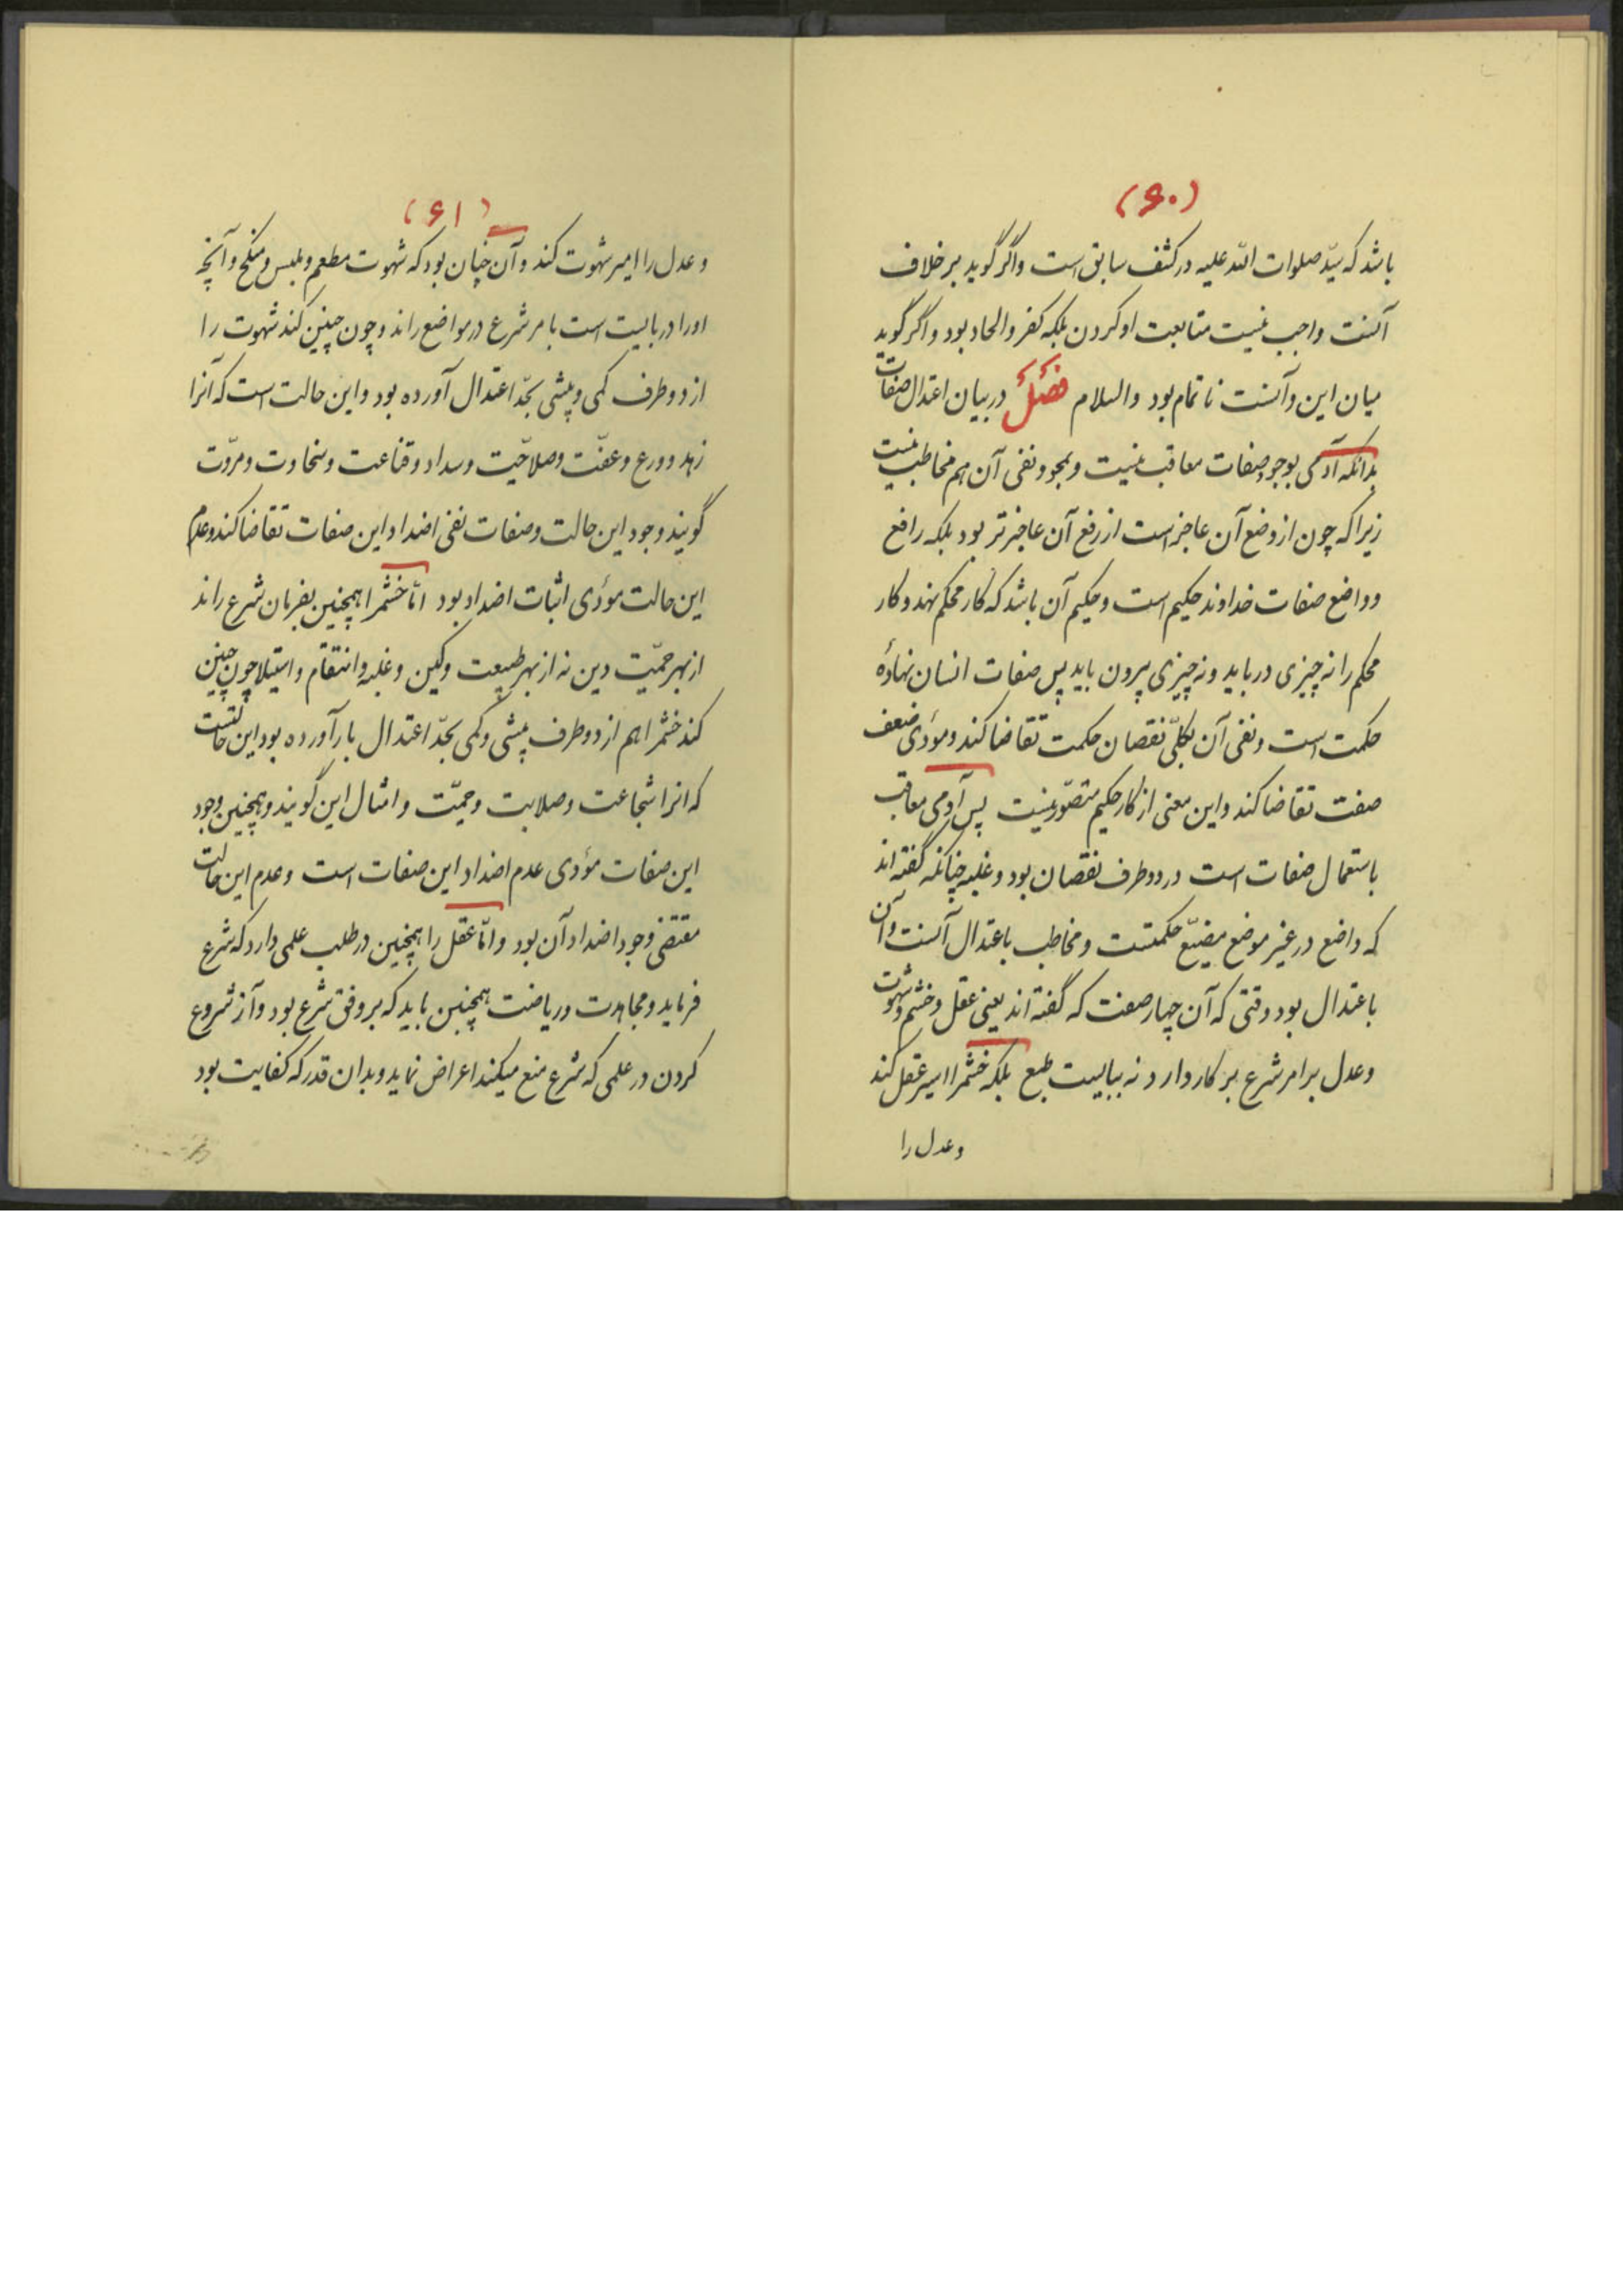 (۶۰)
باشد که سیّد صلوات الله علیه در کشف سابق است و اگر گوید بر خلاف
آنست واجب نیست متابعت او کردن بلکه کفر و الحاد بود و اگر گوید
میان این و آنست ناتمام بود والسلام فصل در بیان اعتدال صفات
بدانکه آدمی بوجود صفات معاقب نیست و بمجرد نفی آن هم مخاطب نیست
زیرا که چون از وضع آن عاجز است از رفع آن عاجزتر بود بلکه رافع
و واضع صفات خداوند حکیم است و حکیم آن باشد که کار محکم نهد و کار
محکم را نه چیزی در باید و نه چیزی بیرون باید پس صفات انسان نهادهٔ
حکمت است و نفی آن بکلّی نقصان حکمت تقاضا کند و مؤدی ضعف
صفت تقاضا کند و این معنی از کار حکیم متصوّر نیست پس آدمی معاقب
باستعمال صفات است در دو طرف نقصان بود و غلبه چنانکه گفته اند
که واضع در غیر موضع مضیّع حکمتست و مخاطب باعتدال آنست و آن
باعتدال بود وقتی که آن چهار صفت که گفته اند یعنی عقل و خشم و شهوت
و عدل بر امر شرع بر کار دارد نه ببایست طبع بلکه خشم را اسیر عقل کند
و عدل را
(۶۱)
و عدل را امیر شهوت کند و آن چنان بود که شهوت مطعم و ملبس و منکح و آنچه
او را دربایست است بامر شرع در مواضع راند و چون چنین کند شهوت را
از دو طرف کمی و بیشی بحدّ اعتدال آورده بود و این حالت است که آنرا
زهد و ورع و عفّت و صلاحیّت و سداد و قناعت و سخاوت و مروّت
گویند وجود این حالت و صفات نفی اضداد این صفات تقاضا کند و عدم
این حالت مؤدی اثبات اضداد بود امّا خشم را همچنین بفرمان شرع راند
از بهر حمیّت دین نه از بهر طبیعت و کین و غلبه و انتقام و استیلا چون چنین
کند خشم را هم از دو طرف بیشی و کمی بحدّ اعتدال بازآورده بود این حالتست
که انرا شجاعت و صلابت و حمیّت و امثال این گویند و همچنین وجود
این صفات مؤدی عدم اضداد این صفات است و عدم این حالت
مقتضی وجود اضداد آن بود و امّا عقل را همچنین در طلب علمی دارد که شرع
فرماید و مجاهدت و ریاضت همچنین باید که بر وفق شرع بود و از شروع
کردن در علمی که شرع منع میکند اعراض نماید و بدان قدر که کفایت بود